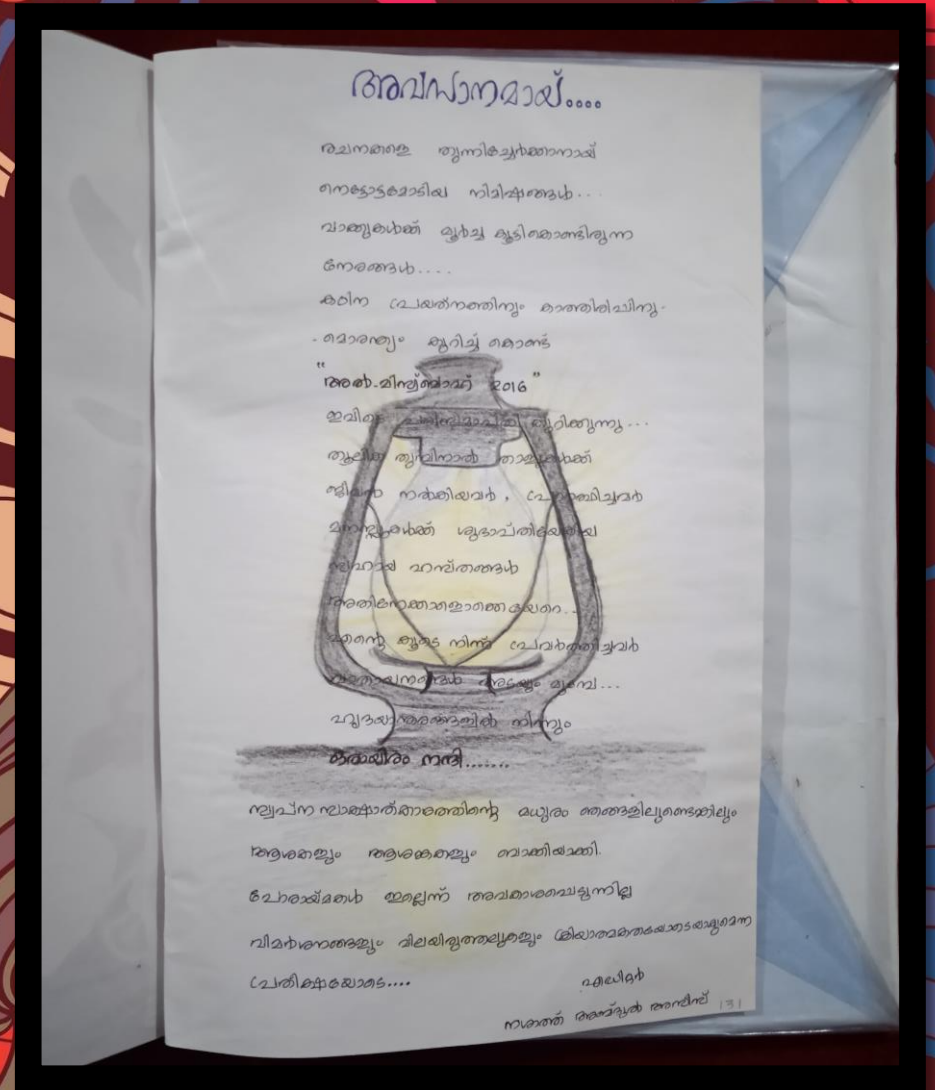 അവസാനമായ്....
രചനകളെ തുന്നിച്ചേർക്കാനായ്
നെട്ടോട്ടമോടിയ നിമിഷങ്ങൾ...
വാക്കുകൾക്ക് മൂർച്ച കൂട്ടികൊണ്ടിരുന്ന
നേരങ്ങൾ....
കഠിന പ്രയത്നത്തിനും കാത്തിരിപ്പിനു
വിരാമം കുറിച്ച് കൊണ്ട്
"അൽ-മിസ്ബാഹ് 2016"
ഇവിടെ പരിസമാപ്തി കുറിക്കുന്നു...
തൂലിക തുമ്പിനാൽ താളുകൾക്ക്
ജീവൻ നൽകിയവർ, പ്രോത്സാഹിപ്പിച്ചവർ
മനസ്സുകൾക്ക് ശുഭാപ്തിയേകിയ
സഹായ ഹസ്തങ്ങൾ
അതിനേക്കാളൊക്കെയേറെ..
എന്റെ കൂടെ നിന്ന് പ്രവർത്തിച്ചവർ
വാതായനങ്ങൾ അടയും മുമ്പേ...
ഹൃദയാന്തരങ്ങളിൽ നിന്നും
ഒരായിരം നന്ദി.......
സ്വപ്ന സാക്ഷാത്കാരത്തിന്റെ മധുരം ഞങ്ങളിലുണ്ടെങ്കിലും
ആശകളും ആശങ്കകളും ബാക്കിയാക്കി.
പോരായ്മകൾ ഇല്ലെന്ന് അവകാശപ്പെടുന്നില്ല
വിമർശനങ്ങളും വിലയിരുത്തലുകളും ക്രിയാത്മകതയോടെയാവുമെന്ന
പ്രതീക്ഷയോടെ....
എഡിറ്റർ
നശാത്ത് അബ്ദുൽ അസീസ്
131